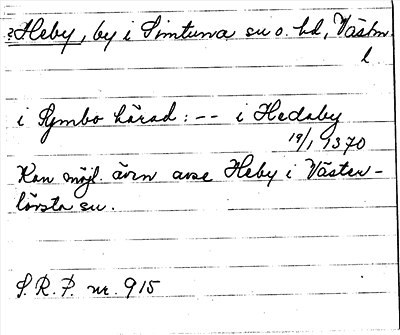 ?Heby, by i Simtuna sn o. hd, Västm.
l
i Symbo härad: -- i Hedaby
19/1 1370
Kan möjl. även avse Heby i Väster-
lövsta sn.
S.R.P. nr. 915